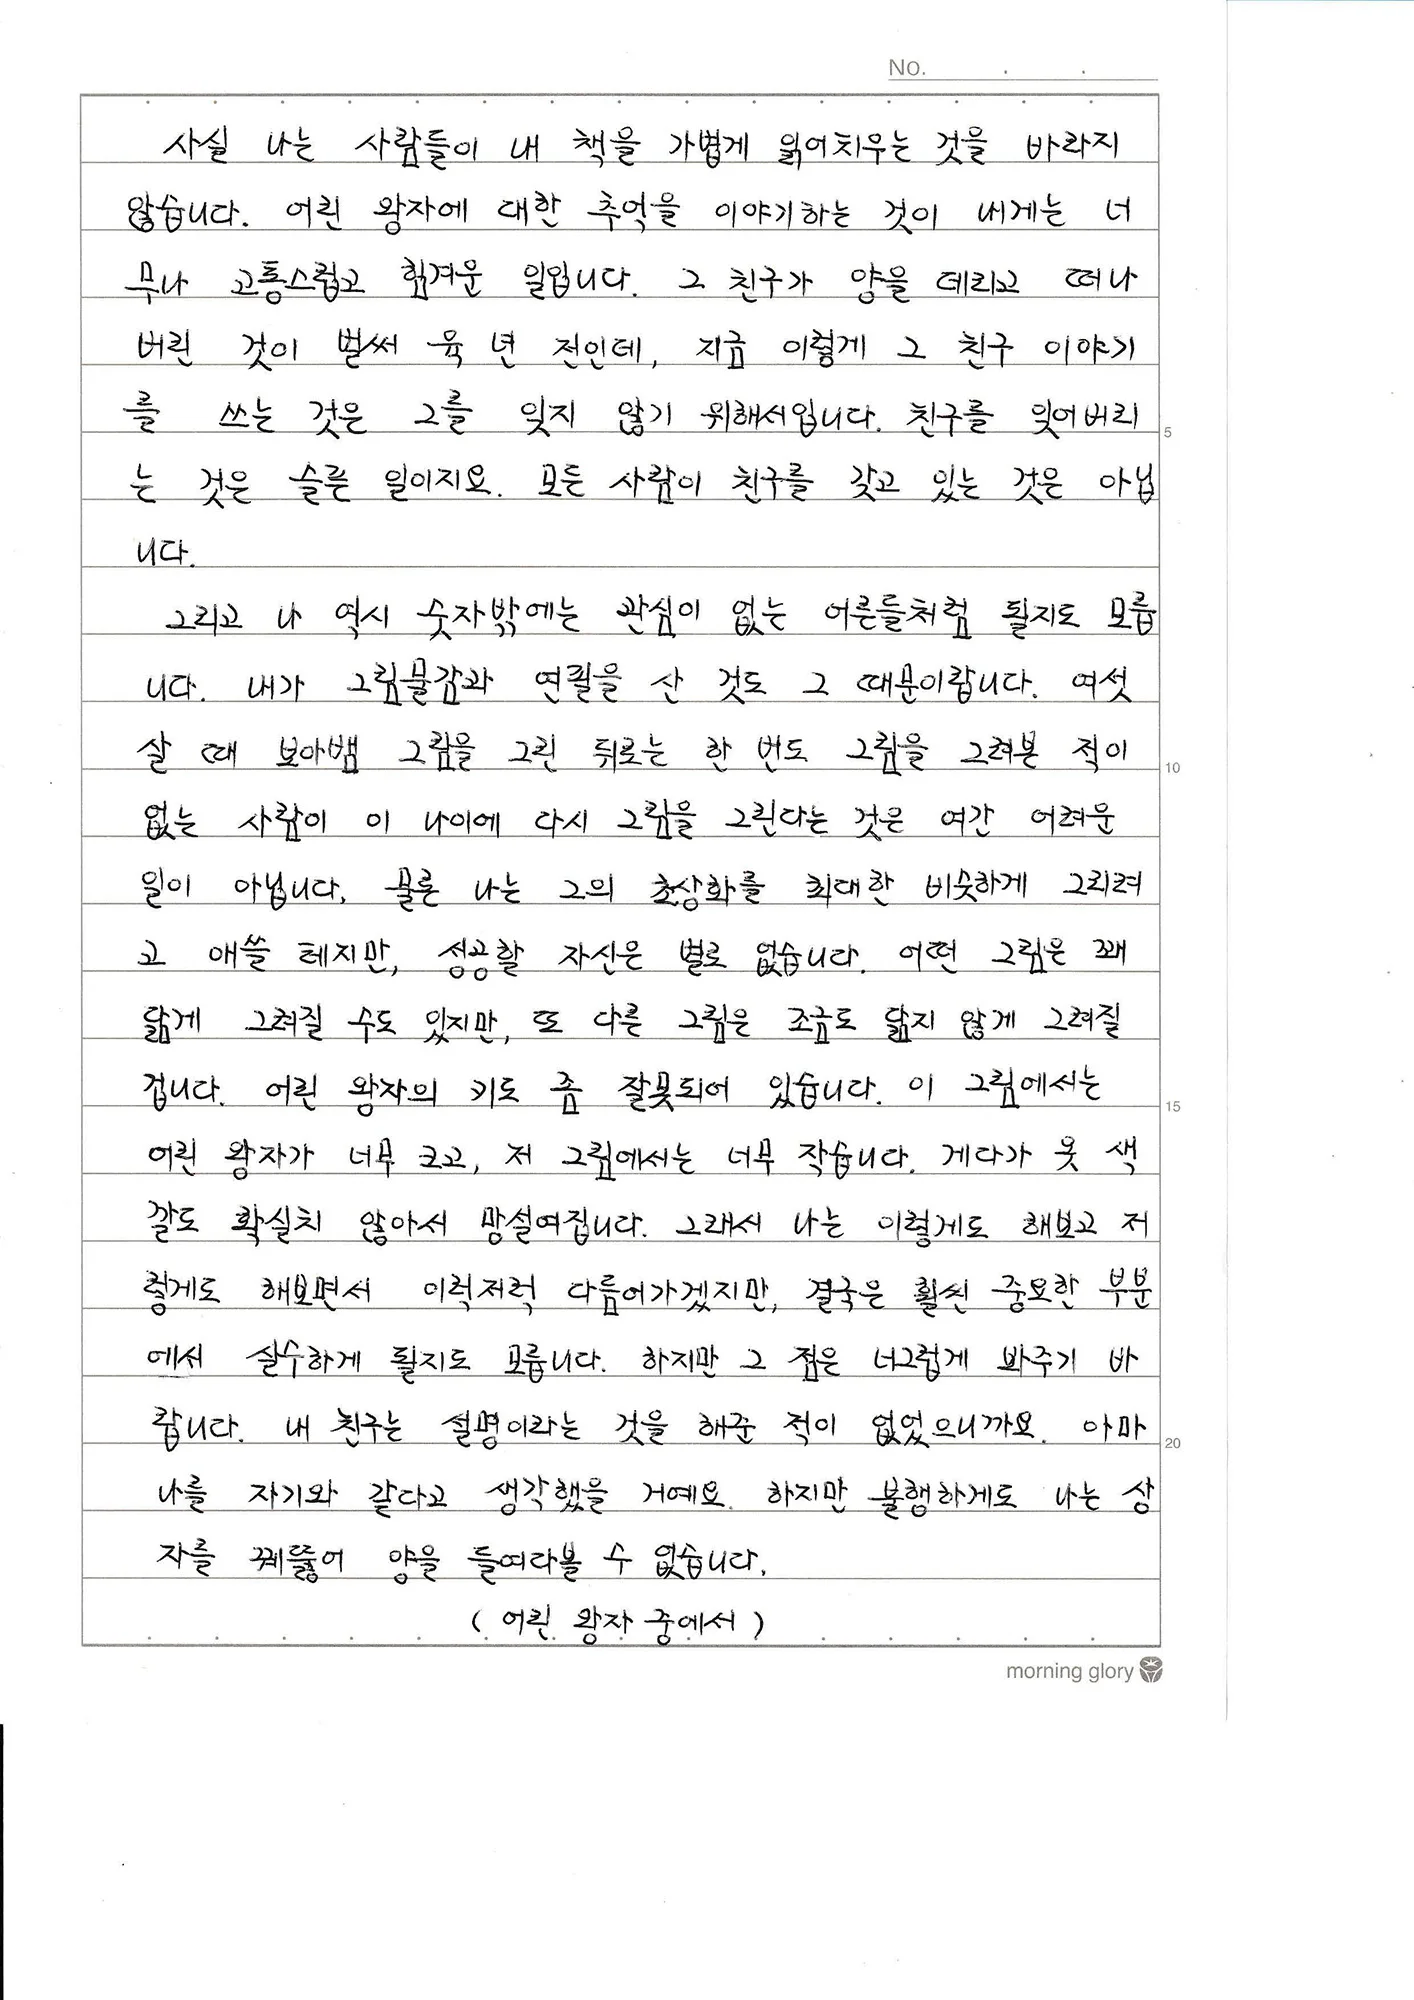 No.
사실 나는 사람들이 내 책을 가볍게 읽어치우는 것을 바라지
않습니다. 어린 왕자에 대한 추억을 이야기하는 것이 내게는 너
무나 고통스럽고 힘겨운 일입니다. 그 친구가 양을 데리고 떠나
버린 것이 벌써 육 년 전인데, 지금 이렇게 그 친구 이야기
를 쓰는 것은 그를 잊지 않기 위해서입니다. 친구를 잊어버리
5
는 것은 슬픈 일이지요. 모든 사람이 친구를 갖고 있는 것은 아닙
니다.
그리고 나 역시 숫자밖에는 관심이 없는 어른들처럼 될지도 모릅
니다. 내가 그림물감과 연필을 산 것도 그 때문이랍니다. 여섯
살 때 보아뱀 그림을 그린 뒤로는 한 번도 그림을 그려본 적이
10
없는 사람이 이 나이에 다시 그림을 그린다는 것은 여간 어려운
일이 아닙니다. 물론 나는 그의 초상화를 최대한 비슷하게 그리려
고 애쓸 테지만, 성공할 자신은 별로 없습니다. 어떤 그림은 꽤
닮게 그려질 수도 있지만, 또 다른 그림은 조금도 닮지 않게 그려질
겁니다. 어린 왕자의 키도 좀 잘못되어 있습니다. 이 그림에서는
15
어린 왕자가 너무 크고, 저 그림에서는 너무 작습니다. 게다가 옷 색
깔도 확실치 않아서 망설여집니다. 그래서 나는 이렇게도 해보고 저
렇게도 해보면서 이럭저럭 다듬어가겠지만, 결국은 훨씬 중요한 부분
에서 실수하게 될지도 모릅니다. 하지만 그 점은 너그럽게 봐주기 바
랍니다. 내 친구는 설명이라는 것을 해준 적이 없었으니까요. 아마
20
나를 자기와 같다고 생각했을 거예요. 하지만 불행하게도 나는 상
자를 꿰뚫어 양을 들여다볼 수 없습니다.
( 어린 왕자 중에서 )
morning glory